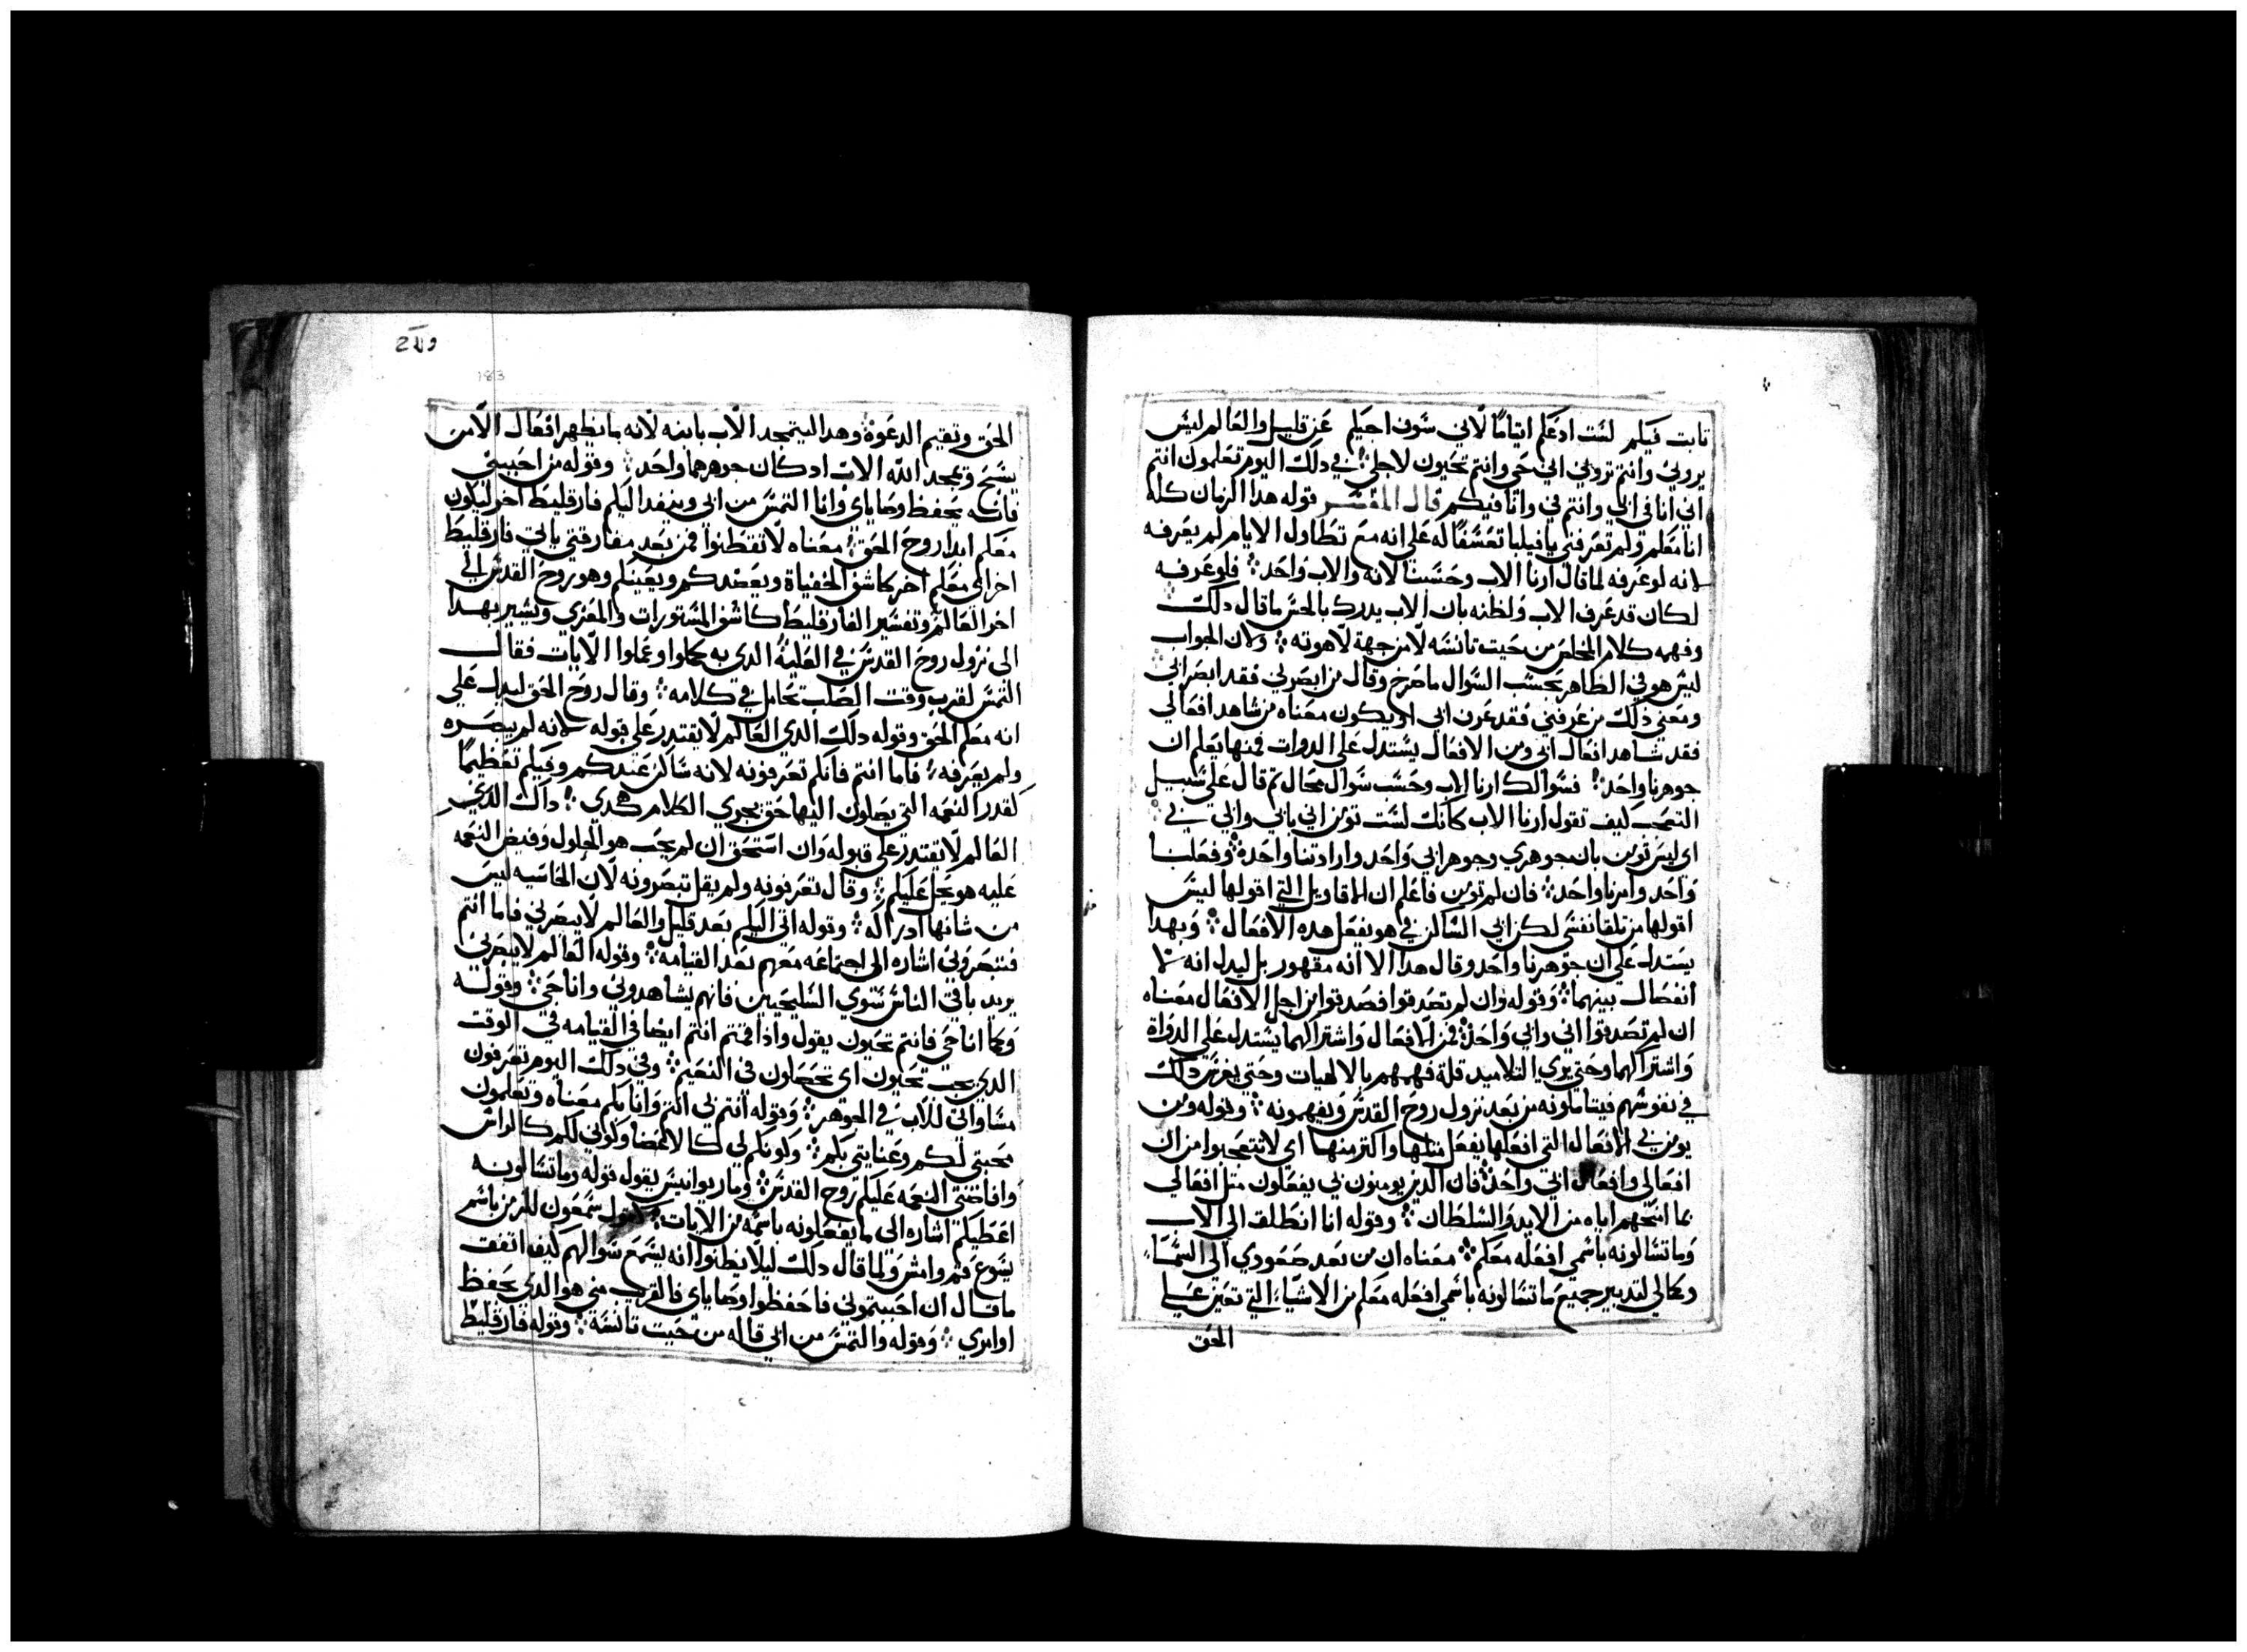 تابت فيكم لست ادعكم ايتامًا لاني سوف اجيكم عن قليل والعالم ليس
يروني وانتم تروني اني حي وانتم تحيون لاجلي في دلك اليوم تعلمون انتم
اني انا في ابي وانتم في وانا فيكم قال المفسر قوله هدا الزمان كله
انا معكم ولم تعرفني يا فيلبا تعسفًا له علي انه مع تطاول الايام لم يعرفه
لانه لو عرفه لما قال ارنا الاب وحسبنا لانه والاب واحد فلو عرفه
لكان قد عرف الاب ولظنه بان الاب يدرك بالحس ما قال دلك
وفهمه كلام المخلص من حيت تانسه لا من جهة لاهوته ولان الجواب
ليس هو في الظاهر بحسب السوال ما صرح وقال من ابصرني فقد ابصر ابي
ومعني دلك من عرفني فقد عرف ابي او يكون معناه من شاهد افعالي
فقد شاهد افعال ابي ومن الافعال يستدل علي الدوات فمنها يعلم ان
جوهرنا واحد فسوالك ارنا الاب وحسب سوال محال تم قال علي سبيل
التعجب كيف تقول ارنا الاب كانك لست تومن اني بابي وابي في
اي ليس تومن بان جوهري وجوهر ابي واحد وارادتنا واحدة وفعلنا
واحد وامرنا واحد فان لم تومن فاعلم ان الاقاويل التي اقولها ليس
اقولها من تلقا نفسي لكن ابي الساكن في هو يفعل هده الافعال وبهدا
يستدل علي ان جوهرنا واحد وقال هدا لا انه مقهور بل ليدل انه لا
انفصال بينهما وقوله وان لم تصدقوا فصدقوا من اجل الافعال معناه
ان لم تصدقوا اني وابي واحد فمن الافعال واشتراكهما يستدل علي الدواة
واشتراكهما وحتي يري التلاميد قلة فهمهم بالالهيات وحتي يغرس دلك
في نفوسهم فيتاملونه من بعد نزول روح القدس ويفهمونه وقوله ومن
يومن بي الافعال التي افعلها يفعل متلها واكتر منها اي لا تتعجبوا من ان
افعالي وافعال ابي واحد فان الدين يومنون بي يفعلون متل افعالي
بما امنحهم اياه من الايد والسلطان وقوله انا انطلق الي الاب
وما تسالونه باسمي افعله معكم معناه ان من بعد صعودي الي السما
وكمالي لتدبير جميع ما تسالونه باسمي افعله معكم من الاشيا التي تعين علي
الحق
183
الحق وتقيم الدعوة وهدا ليتمجد الاب بابنه لانه بما يظهر افعال الابن
يسبح ويمجد الله الاب اد كان جوهرهما واحد وقوله من احبني
فانه يحفظ وصاياي وانا التمس من ابي وينفد اليكم فارقليط اخر ليكون
معكم ابدا روح الحق معناه لا تقطنوا فمن بعد مفارقتي ياتي فارقليط
اخر اي معلم اخر كاشف الخفياة ويعضدكم ويعينكم وهو روح القدس الي
اخر العالم وتفسير الفارقليط كاشف المستورات والمعزي ويشير بهدا
الي نزول روح القدس في العلية الدي به كملوا وعملوا الايات فقال
التمس لقرب وقت الصلب تحامل في كلامه وقال روح الحق ليدل علي
انه معلم الحق وقوله دلك الدي العالم لا يقتدر علي قبوله لانه لم يبصره
ولم يعرفه فاما انتم فانكم تعرفونه لانه ساكن عندكم وفيكم تعظيمًا
لقدر النعمه التي يصلون اليها حق يجري الكلام هكدي داك الدي
العالم لا يقتدر علي قبوله وان استحق ان لم يحب هو الحلول وفيض النعمه
عليه هو يحل عليكم وقال تعرفونه ولم يقل تبصرونه لان الحاسيه ليس
من شانها ادراكه وقوله اتي اليكم بعد قليل والعالم لا يبصرني فاما انتم
فتبصروني اشاره الي اجتماعه معهم بعد القيامه وقوله العالم لا يبصرني
يريد باقي الناس سوي السليحيين فانهم يشاهدوني وانا حي وقوله
وكما انا حي فانتم تحيون يقول وادا قمتم انتم ايضا في القيامه في الوقت
الدي يجب تحيون اي تحصلون في النعيم وفي دلك اليوم تعرفون
مساواتي للاب في الجوهر وقوله انتم بي انتم وانا بكم معناه وتعلمون
محبتي لكم وعنايتي بكم وكونكم لي كالاعضا وكوني لكم كالراس
وافاضتي النعمه عليكم روح القدس وماريوانيس يقول قوله وما تسالونه
اعطيكم اشاره الي ما يفعلونه باسمه من الايات كقول سمعون للزمن باسم
يسوع قم وامش ولما قال دلك ليلا يظنوا انه يسمع سوالهم كيف اتفق
ما قال ان احببتموني فاحفظوا وصاياي فالقريب مني هو الدي يحفظ
اوامري وقوله والتمس من ابي قاله من حيت تانسه وقوله فارقليط